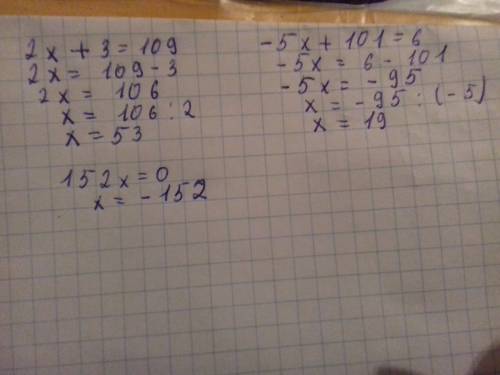 2x + 3 = 109
2x = 109 - 3
2x = 106
x = 106 : 2
x = 53
-5x + 101 = 6
-5x = 6 - 101
-5x = -95
x = -95 : (-5)
x = 19
152x = 0
x = -152